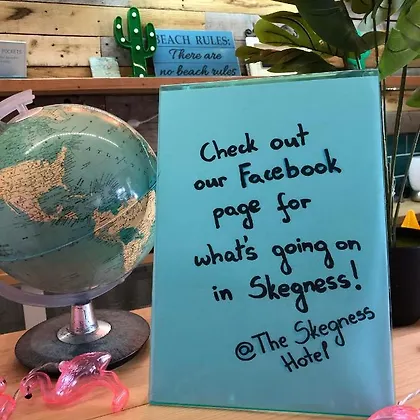 BEACH RULES:
There are
no beach rules
Check out
our Facebook
page for
what's going on
in Skegness!
@The Skegness
Hotel